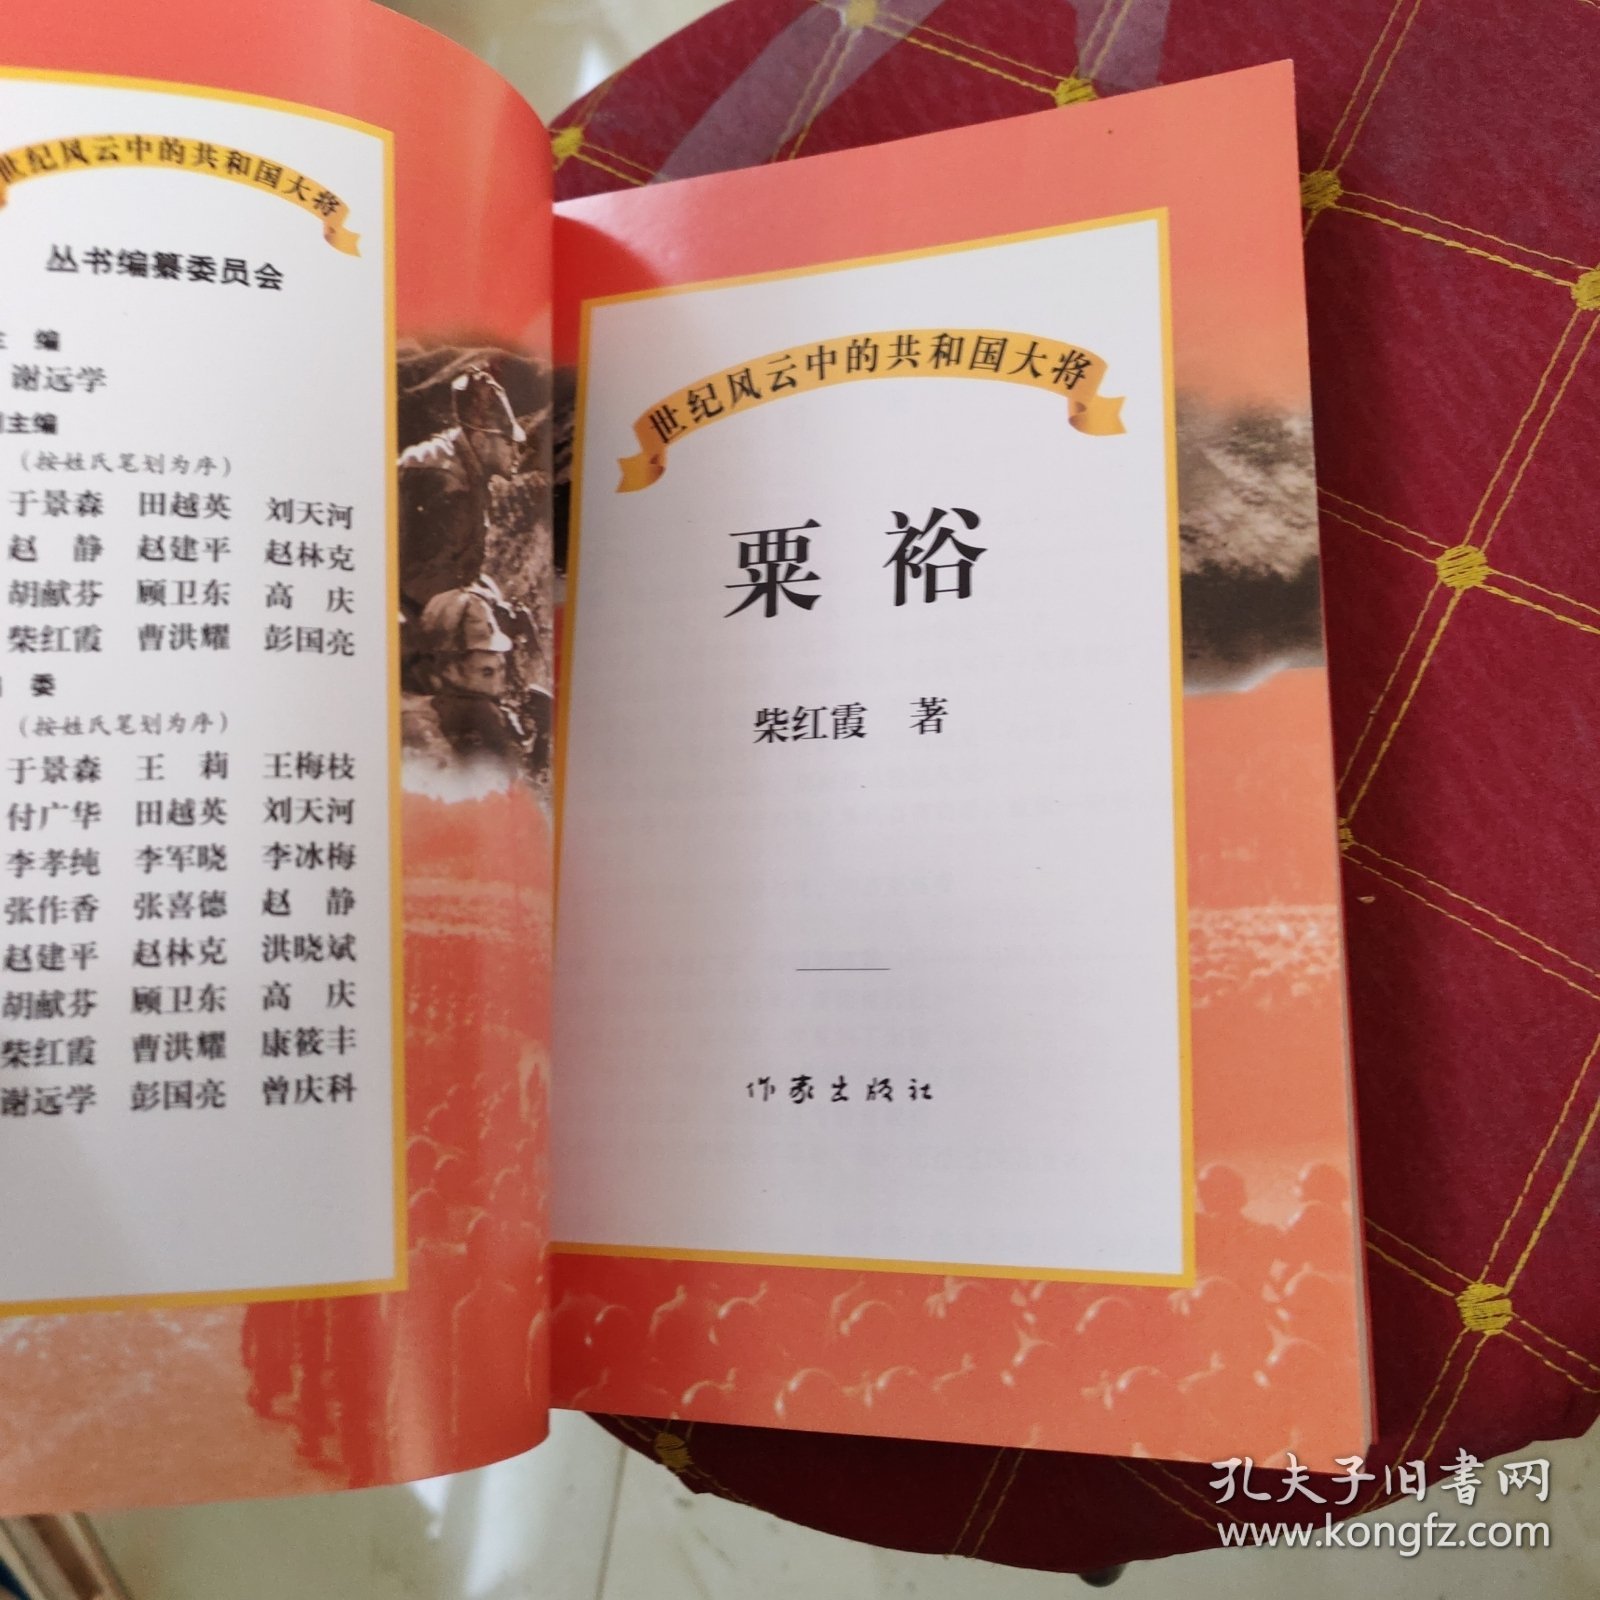 世纪风云中的共和国大将
丛书编纂委员会
主 编
谢远学
副主编
（按姓氏笔划为序）
于景森 田越英 刘天河
赵 静 赵建平 赵林克
胡献芬 顾卫东 高 庆
柴红霞 曹洪耀 彭国亮
编 委
（按姓氏笔划为序）
于景森 王 莉 王梅枝
付广华 田越英 刘天河
李孝纯 李军晓 李冰梅
张作香 张喜德 赵 静
赵建平 赵林克 洪晓斌
胡献芬 顾卫东 高 庆
柴红霞 曹洪耀 康筱丰
谢远学 彭国亮 曾庆科
世纪风云中的共和国大将
粟裕
柴红霞 著
作家出版社
孔夫子旧书网
www.kongfz.com